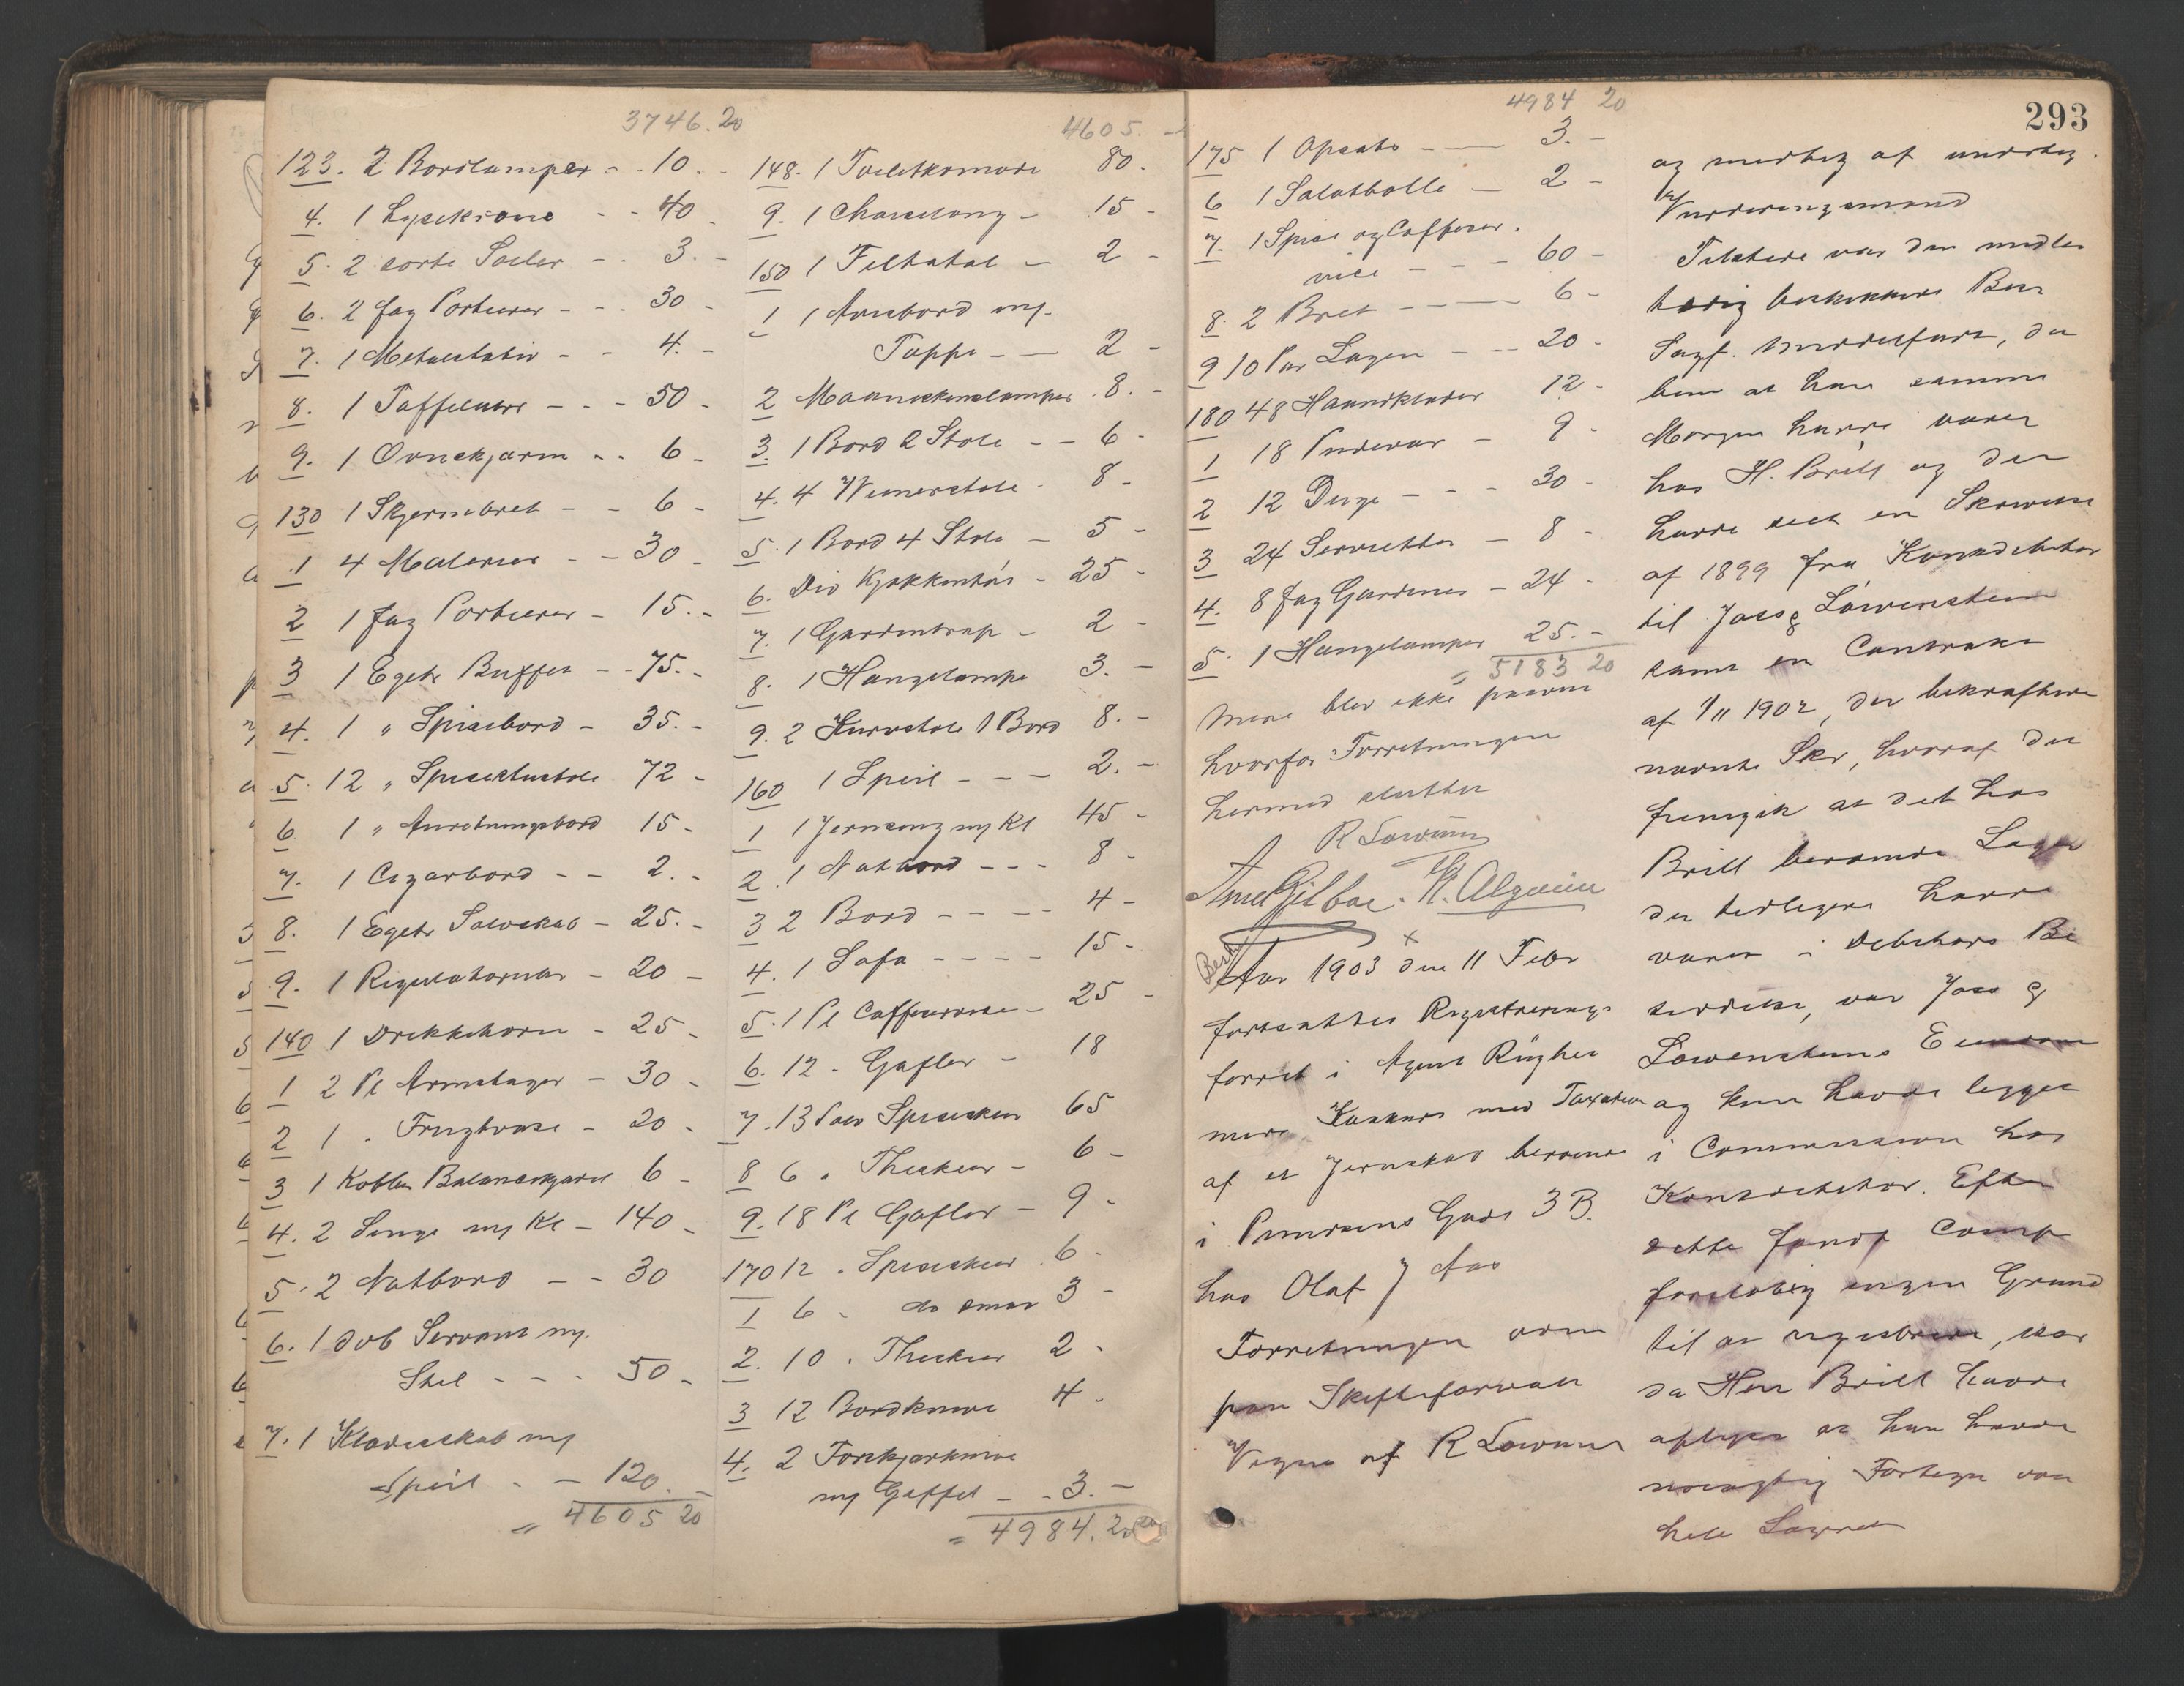 3746.20
123. 2 Bordlamper - - 10. -
4. 1 Lysekrone - - 40 -
5. 2 sorte Søiler - - 3. -
6. 2 fag Portierer - - - 30 -
7. 1 Metalstativ - - 4. -
8. 1 Taffeluhr - - - 50 -
9. 1 Ovnskjærm - - 6 -
130 1 Skjermbret - - 6 -
1 4 Malerier - - 30 -
2 1 fag Portierer - 15. -
3 1 Egetr Buffet - - 75. -
4. 1 " Spisebord - 35. -
5. 12 " Spisestuestole 72 -
6 1 " Anretningsbord 15 -
7. 1 Cigarbord - - 2. -
8. 1 Egetr Sølvskab - 25. -
9. 1 Regulatoruhr - 20 -
140 1 Drikkehorn - 25 -
1 2 Pl Armstager - 30 -
2 1 " Frugtvase - 20 -
3 1 Kobber 6 -
4. 2 Senge m/ Kl - 140 -
5. 2 Natbord - - 30
6. 1 dob Servant m/
Stel - - - 50 -
7. 1 Klædesskab m/
Speil - - 120. -
= 4605 20
4605. -
148. 1 Toiletkomode 80 -
9. 1 Chaiselong - 15 -
150 1 Feltstol - 2 -
1 1 Avisbord m/
Tæppe - - 2 -
2 Maaneskinslamper 8. -
3. 1 Bord 2 Stole - - 6 -
4. 4 Wienerstole - 8 -
5. 1 Bord 4 Stole - 5 -
6. Div Kjøkkentøi - 25 -
7. 1 Gardintrap - 2 -
8. 1 Hængelampe 3. -
9. 2 Kurvstole 1 Bord 8. -
160 1 Speil - - - 2. -
1 1 Jernseng m/ Kl 45 -
2. 1 Natbord - - - 8 -
3 2 Bord - - - - 4 -
4. 1 Sofa - - - - 15 -
5. 1 Pl Caffeservise - 25 -
6. 12 - Gafler - 18
7. 13 Sølv Spiseskeer 65
8 6 " Theskeer - 6 -
9. 18 Pl Gafler - 9 -
170 12 " Spiseskeer 6 -
1 6 " do smaa 3 -
2. 10 " Theskeer 2 -
3 12 Bordknive 4 -
4. 2 Forskjærknive
m/ Gaffel - - 3. -
= 4984. 20
4984 20
293
175 1 Opsats - - 3. -
6 1 Salatbolle - 2 -
7. 1 Spise og Caffeser-
vice - - - 60 -
8. 2 Bret - - - 6 -
9 10 Par Lagen - - - 20 -
180 48 Haandklæder 12 -
1 18 Pudevar - 9 -
2 12 Duge - - - 30 -
3 24 Servietter - 8 -
4. 8 fag Gardiner - 24 -
5. 1 Hængelamper 25. -
= 5183 20
Mere blev ikke paavist
hvorfor Forretningen
hermed sluttes
R Løwener
Aar 1903 den 11 Febr
fortsattes Registrerings-
forret i Agent
mers Konkurs med Taxation
af et Jernskab beroende
i Pundsens Gade 3 B.
hos Olaf J Aas
Forretningen adm
paa Skifteforvalt
Vegne af R Løwener
og medteg af underteg
Vurderingsmænd
Tilstede var den midler
tidig beskikkede Best
Sagf. Middelfart, der
bem at han samme
Morgen havde været
hos H. Brill og der
havde seet en Skrivelse
af 1899 fra Konkdebitor
til Joss & Löwenstein
samt en Contrakt
af 1/11 1902, der bekræftede
nævnte Skr, hvoraf det
fremgik at det hos
Brill beroende Lager
der tidligere havde
været i Debitors Be
siddelse, var Joss &
Löwensteins Eiendom
og kun havde ligget
i Commission hos
Konkdebitor. Efter
dette fandt Comp
foreløbig ingen Grund
til at registrere, især
da Herr Brill havde
oplyst at han havde
nøiagtig Forteg over
hele Lageret